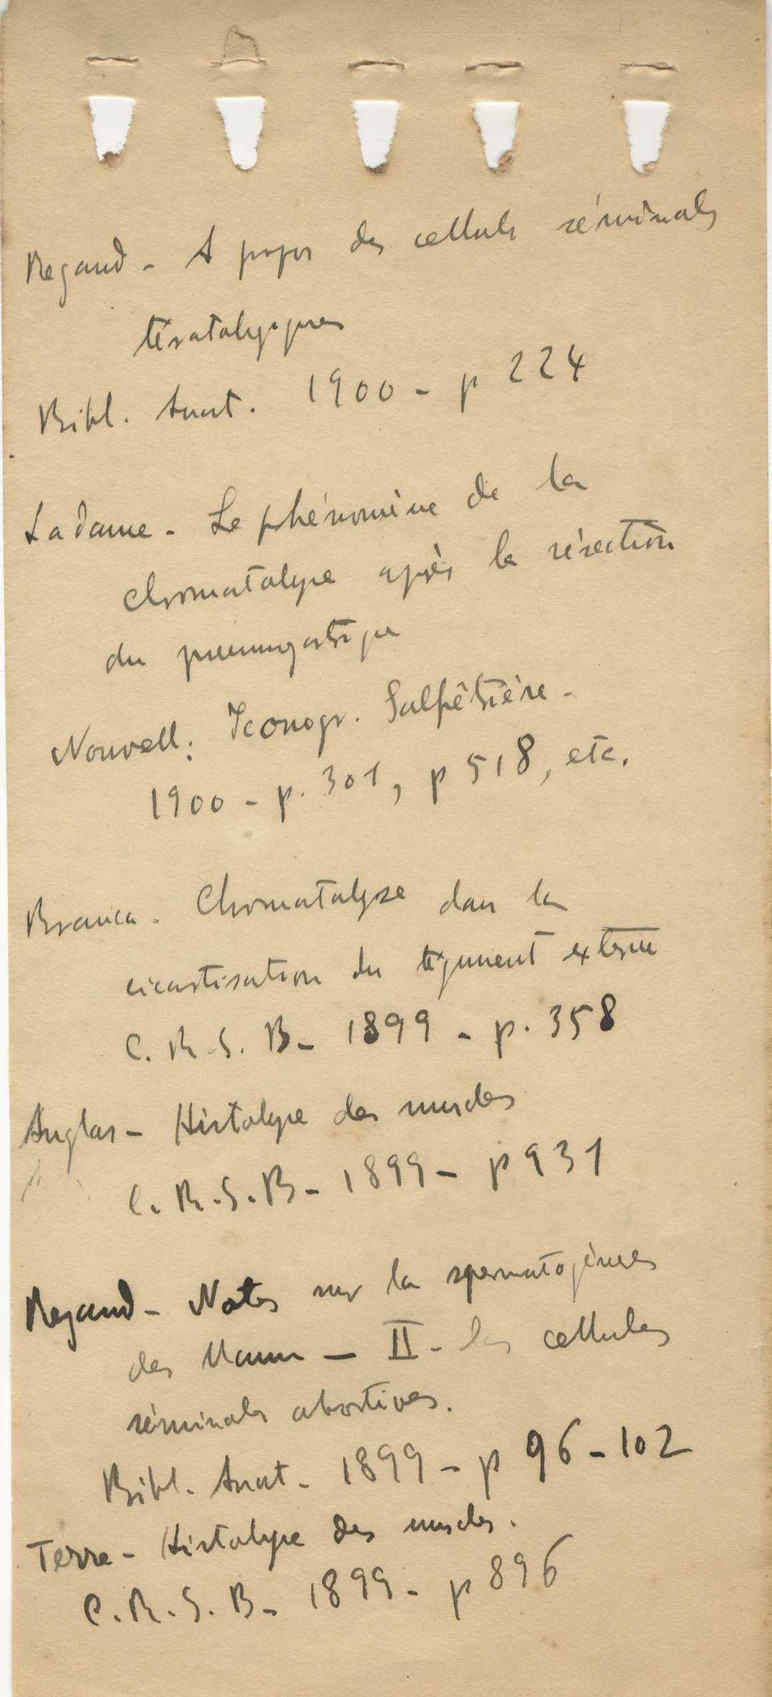 Regaud - A propos des cellules séminales
tératologiques
Bibl. Anat. 1900 - p 224
Ladame - Le phénomène de la
chromatolyse après la résection
du pneumogastrique
Nouvell: Iconogr. Salpêtrière -
1900 - p. 301, p 518, etc.
Branca - Chromatolyse dans la
cicatrisation du tégument externe
C. R. S. B - 1899 - p. 358
Anglas - Histolyse des muscles
C. R. S. B - 1899 - p 931
Regaud - Notes sur la spermatogénèse
des Mamm - II - les cellules
séminales abortives.
Bibl. Anat - 1899 - p 96-102
Terre - Histolyse des muscles.
C. R. S. B - 1899 - p 896